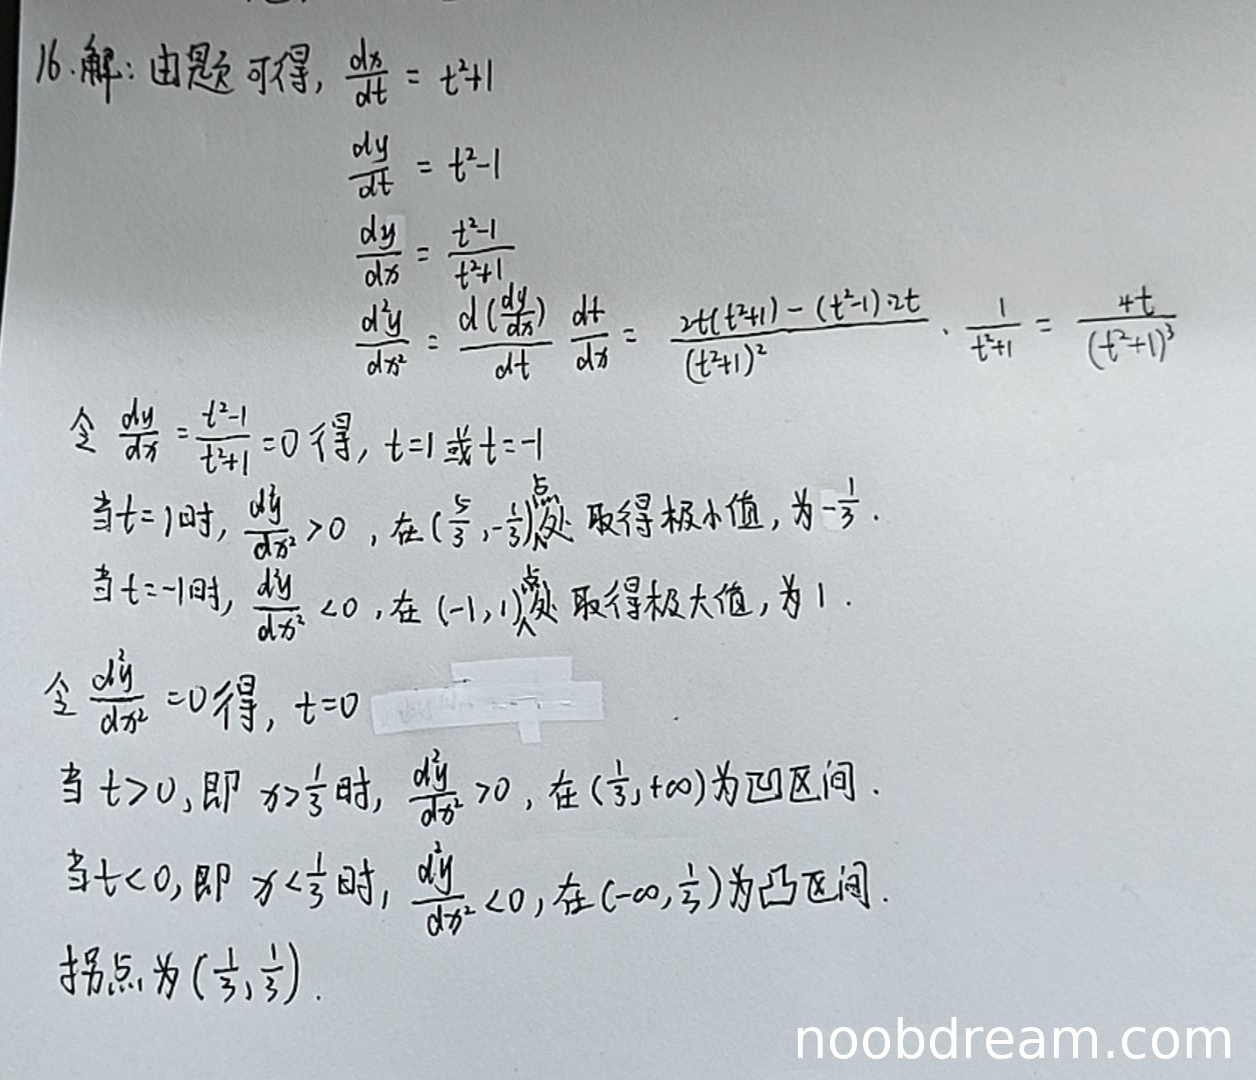 16.解：由题可得, dx/dt = t²+1
dy/dt = t²-1
dy/dx = (t²-1)/(t²+1)
d²y/dx² = d(dy/dx)/dt dt/dx = (2t(t²+1)-(t²-1)·2t)/(t²+1)² · 1/(t²+1) = 4t/(t²+1)³
令 dy/dx = (t²-1)/(t²+1) = 0 得, t=1 或 t=-1
当t=1时, d²y/dx² >0, 在(5/3, -1/3)点处 取得极小值, 为-1/3.
当t=-1时, d²y/dx² <0, 在(-1,1)点处 取得极大值, 为1.
令 d²y/dx² =0得, t=0
当 t>0, 即 x>1/3时, d²y/dx² >0, 在(1/3,+∞)为凹区间.
当t<0, 即 x<1/3时, d²y/dx² <0, 在(-∞,1/3)为凸区间.
拐点为(1/3,1/3).
noobdream.com